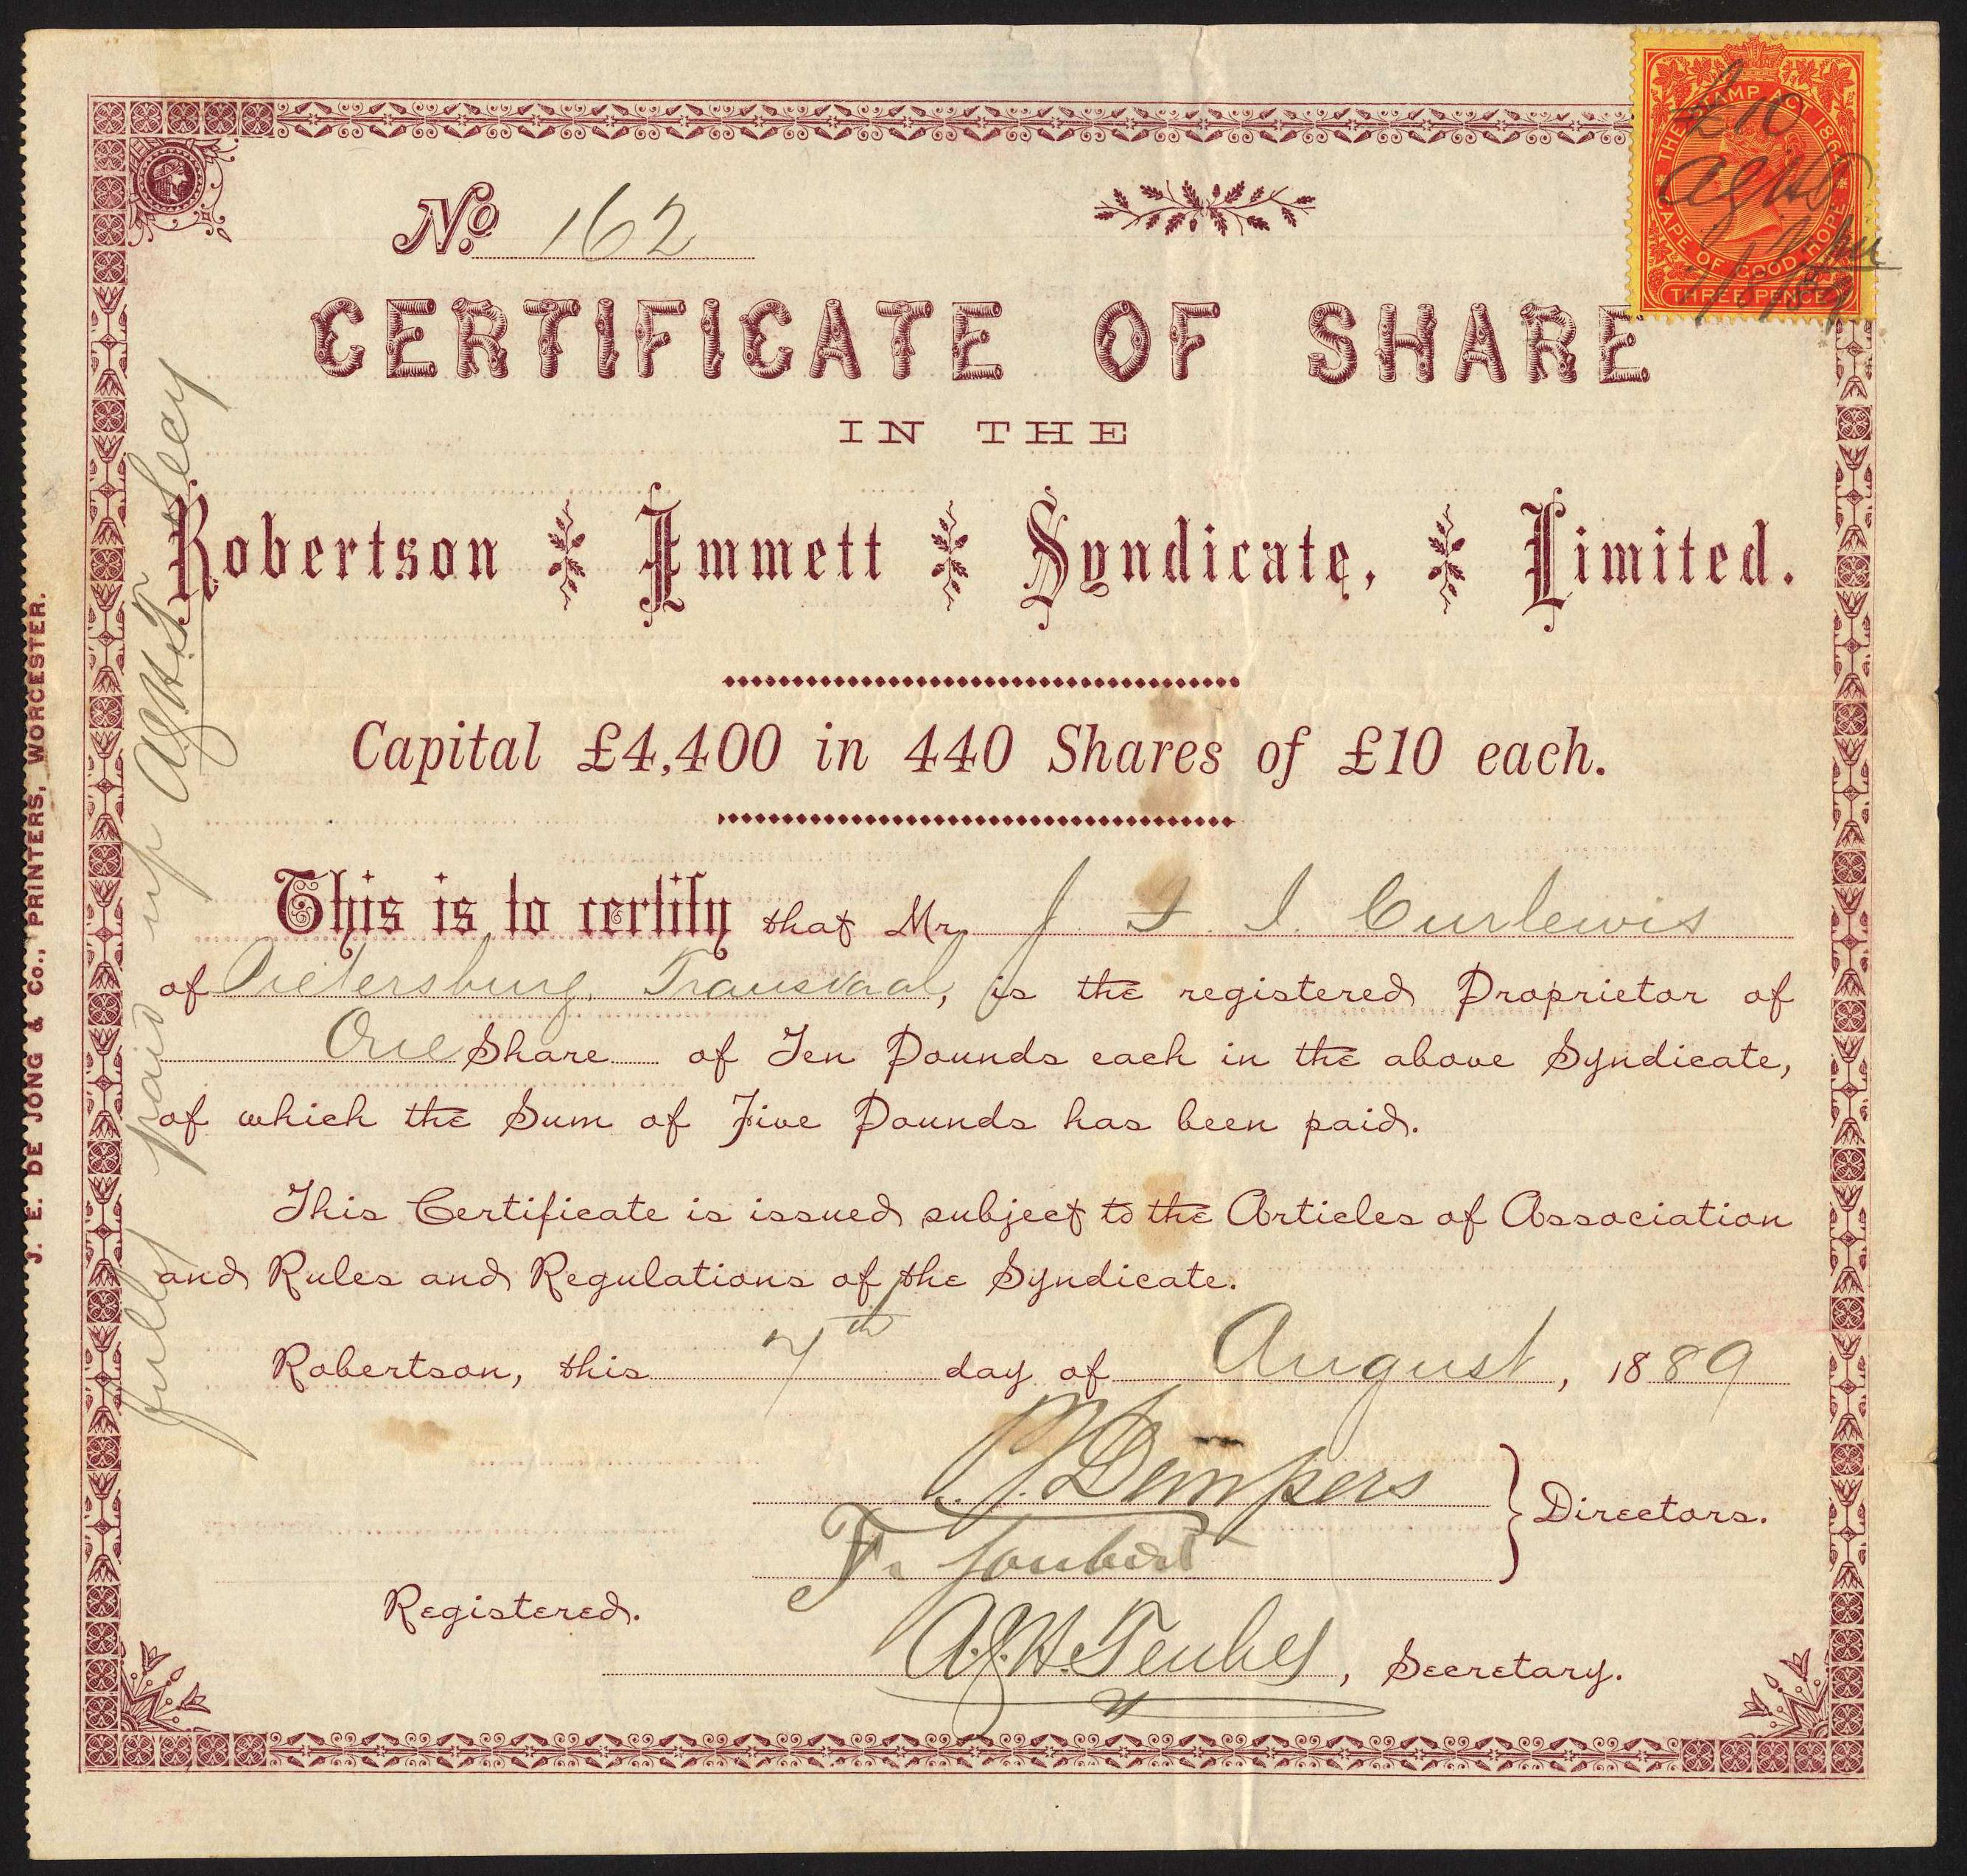 No. 162
THE STAMP ACT 186
CAPE OF GOOD HOPE
THREE PENCE
£10
7/8/89
CERTIFICATE OF SHARE
IN THE
Robertson Immett Syndicate, Limited.
Capital £4,400 in 440 Shares of £10 each.
This is to certify that Mr. J F I. Curlewis
of Pietersburg, Transvaal, is the registered Proprietor of
One Share of Ten Pounds each in the above Syndicate,
of which the Sum of Five Pounds has been paid.
This Certificate is issued subject to the Articles of Association
and Rules and Regulations of the Syndicate.
Robertson, this 7th day of August, 1889
Dempers
F. Joubert
Directors.
Registered.
A.G.H. Teubes, Secretary.
fully paid up AGHT Secy
J. E. DE JONG & Co., PRINTERS, WORCESTER.